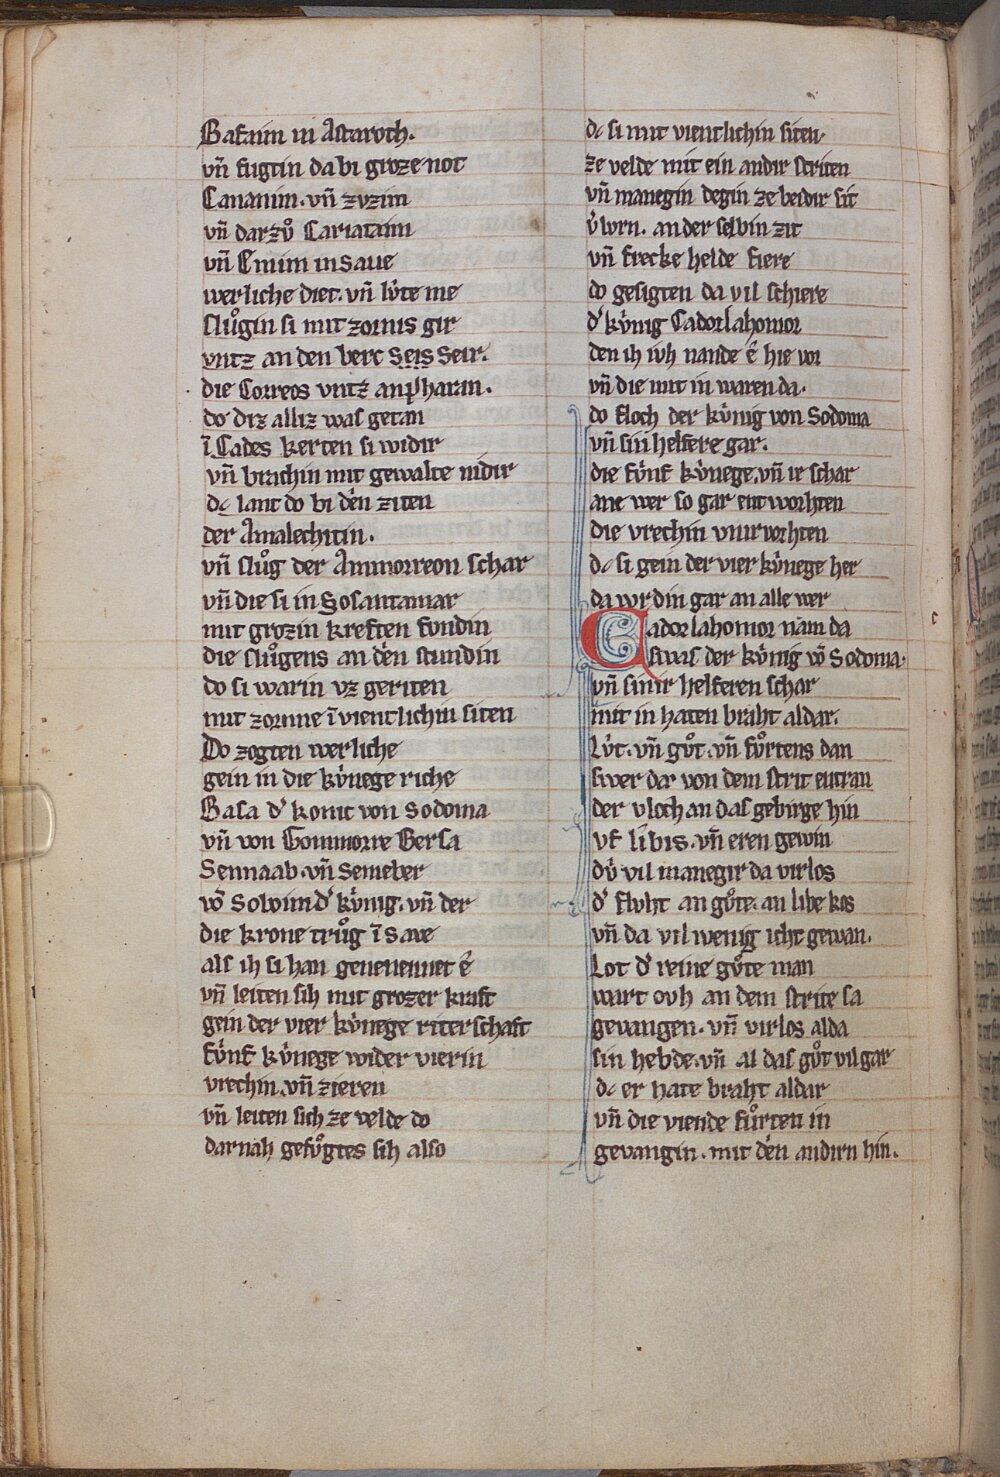 Bafaim in Astaroth.
vn̄ fugtin da bi groze not
Cananim. vn̄ zvzim
vn̄ darzuͦ Cariataim
vn̄ Emim in Saue
werliche diet. vn̄ lv́te me
sluͦgin si mit zornis gir
vntz an den berc Seis Seir.
die Correos vntz an Pharan.
do diz alliz was getan
ī Cades kerten si widir
vn̄ brachin mit gewalte nidir
dc lant do bi den ziten
der Amalechitin.
vn̄ sluͦg der Ammorreon schar
vn̄ die si in Sosantamar
mit grozin kreften fundin
die sluͦgens an den stundin
do si warin vz geriten
mit zornne ī vientlichin siten
Do zogten werliche
gein in die kv́nege riche
Basa d' konic von Sodoma
vn̄ von Gommorre Bersa
Sennaab. vn̄ Semeber
vō Soloim d' kv́nig. vn̄ der
die krone truͦg ī Save
als ih si han genenennet é
vn̄ leiten sih mit grozer kraft
gein der vier kv́nege riterschaft
fv́nf kv́nege wider vierin
vrechin. vn̄ zieren
vn̄ leiten sich ze velde do
darnah gefuͦgtes sih also
dc si mit vientlichin siten.
ze velde mit ein andir striten
vn̄ manegin degin ze beidir sit
v'lvrn. an der selbin zit
vn̄ frecke helde fiere
do gesigten da vil schiere
d' kv́nig Cadorlahomor
den ih ivh nande é hie vor
vn̄ die mit in waren da.
do floch der kv́nig von Sodoma
vn̄ sin helfere gar.
die fv́nf kv́nege. vn̄ ir schar
ane wer so gar entworhten
die vrechin vnirvorhten
dc si gein der vier kv́nege her
da wrdin gar an alle wer
Cadorlahomor nam da
swas der kv́nig vō Sodoma.
vn̄ sinir helferen schar
mit in haten braht aldar.
Lv́t. vn̄ guͦt. vn̄ fuͦrtens dan
swer dar von dem strit entran
der vloch an das gebirge hin
vf libis. vn̄ eren gewin
dv́ vil manegir da virlos
d' flvht an guͦte. an libe kos
vn̄ da vil wenig icht gewan.
Lot d' reine guͦte man
wart ovh an dem strite sa
gevangen. vn̄ virlos alda
sin hebde. vn̄ al das guͦt vil gar
dc er hate braht aldar
vn̄ die viende fuͦrten in
gevangin. mit den andirn hin.